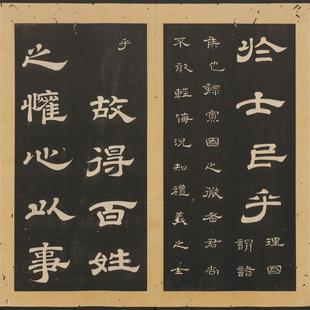 於士民乎
理國
謂諸
侯也鰥寡國之微者君尚
不敢輕侮況知禮義之士
乎
故得百姓
之懽心以事